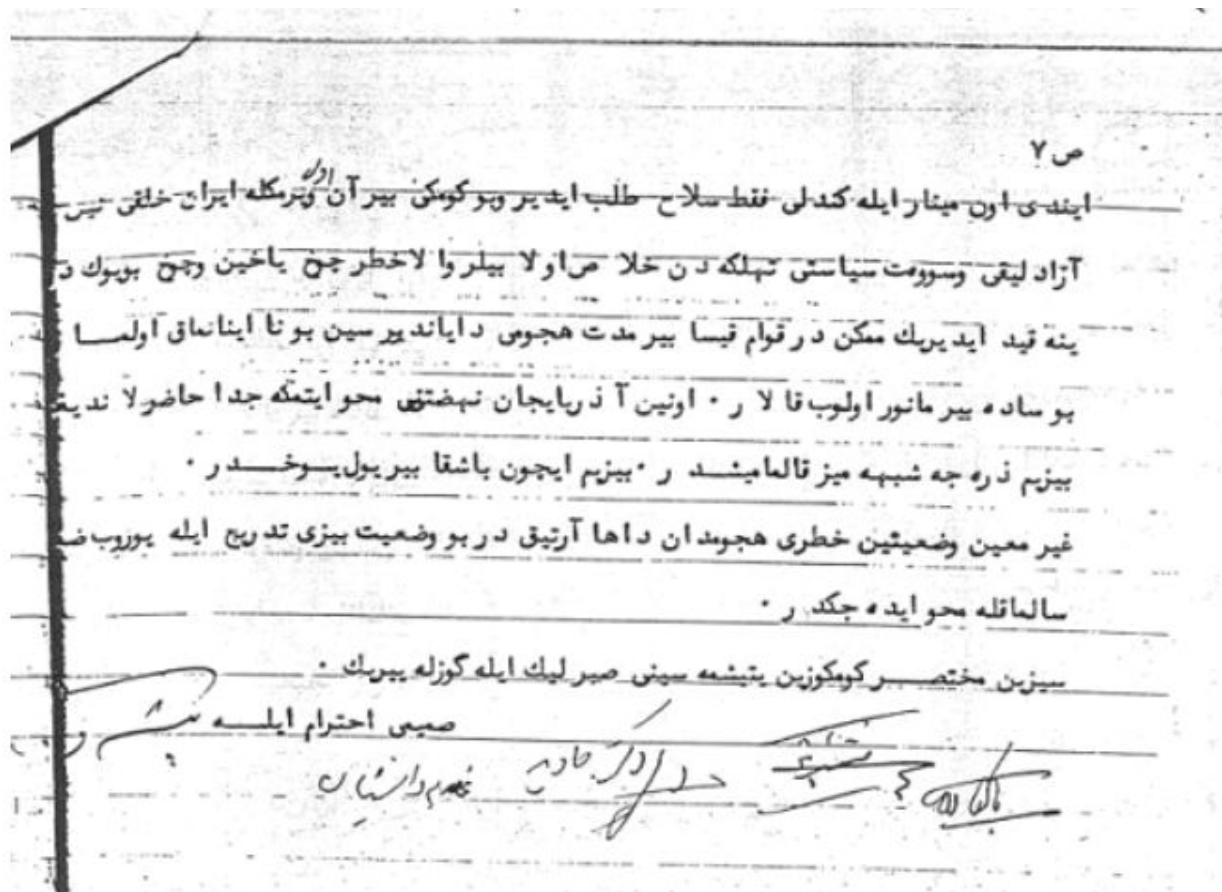 ص ۷
ایندی اون مینلر ایله کندلی فقط سلاح طلب ایدیر وبو کومکی بیر آن اول ویرمکله ایران خلقی نین
آزاد لیقی وسوومت سیاستی تهلکه د ن خلا ص او لا بیلر والا خطر چخ یاخین وچخ بویوك د
ینه قید ایدیریك ممکن د ر قوام قیسا بیر مدت هجومی د ایاندیر سین بو نا اینانماق اولمــا
بو ساد ه بیر مانور اولوب قا لا ر ۰ اونین آ ذربایجان نهضتنی محو ایتمکه جدا حاضر لا ندیقـ
بیزیم ذره جه شبهه میز قالمامیشــد ر ۰ بیزیم ایچون باشقا بیر یول یــوخــد ر ۰
غیر معین وضعیتین خطری هجومدان داها آرتیق د ر بو وضعیت بیزی تدریج ایله یوروب ضـ
سالماقله محو ایده جکد ر ۰
سیزین مختصــر کومکوزین یتیشمه سینی صبر لیك ایله گوزله ییریك ۰
صمیمی احترام ایلــه